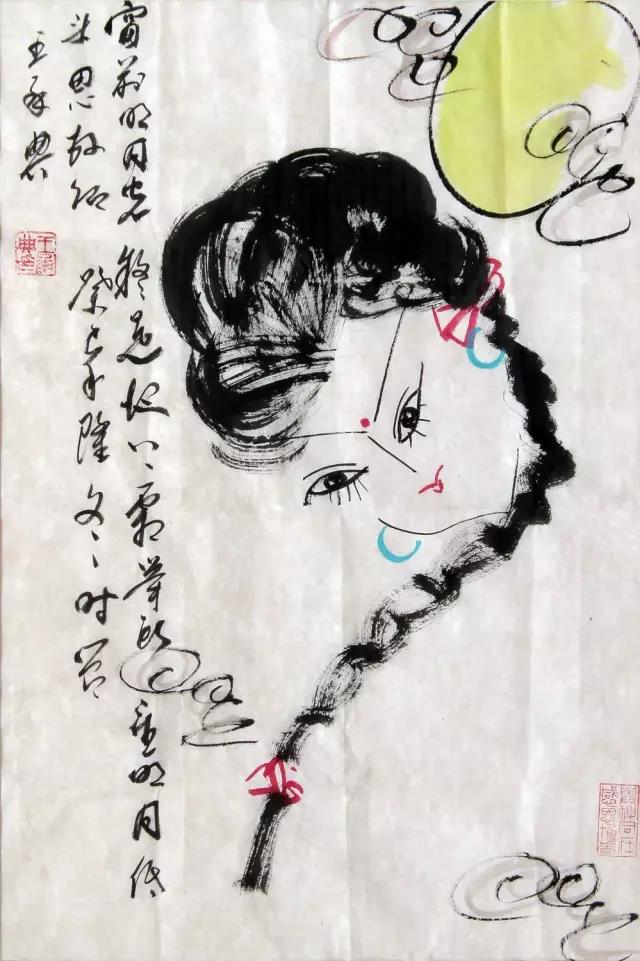 窗前明月光疑是地上霜举头望明月低
头思故乡 癸巳年隆冬之时节
王承典